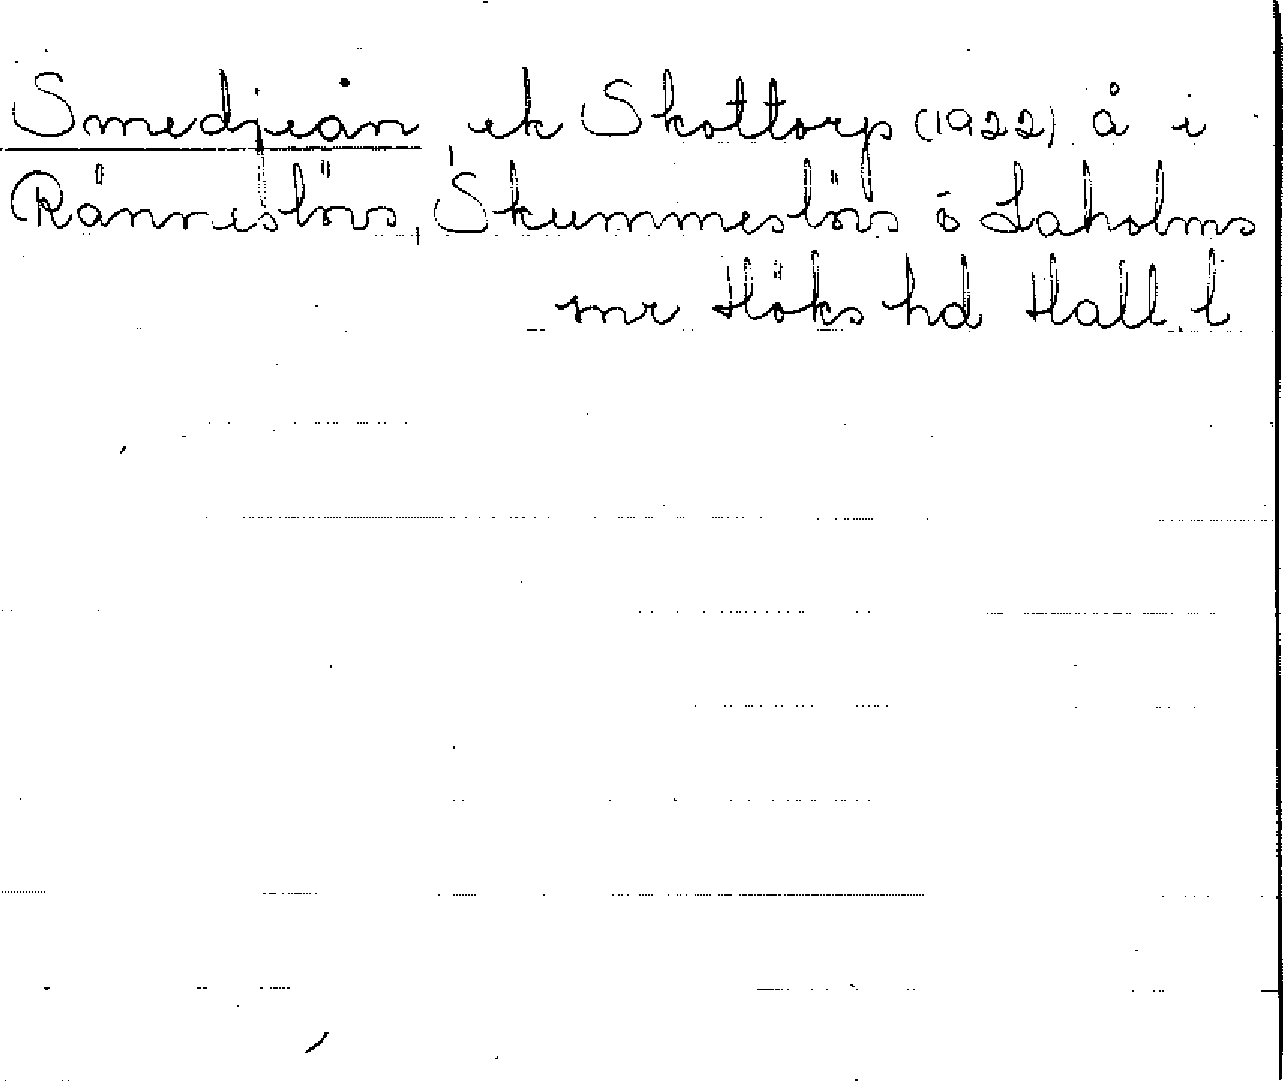 Smedjeån ek Skottorp (1922) å i
Rånneslövs, Skummeslövs o Laholms
snr Höks hd Hall l